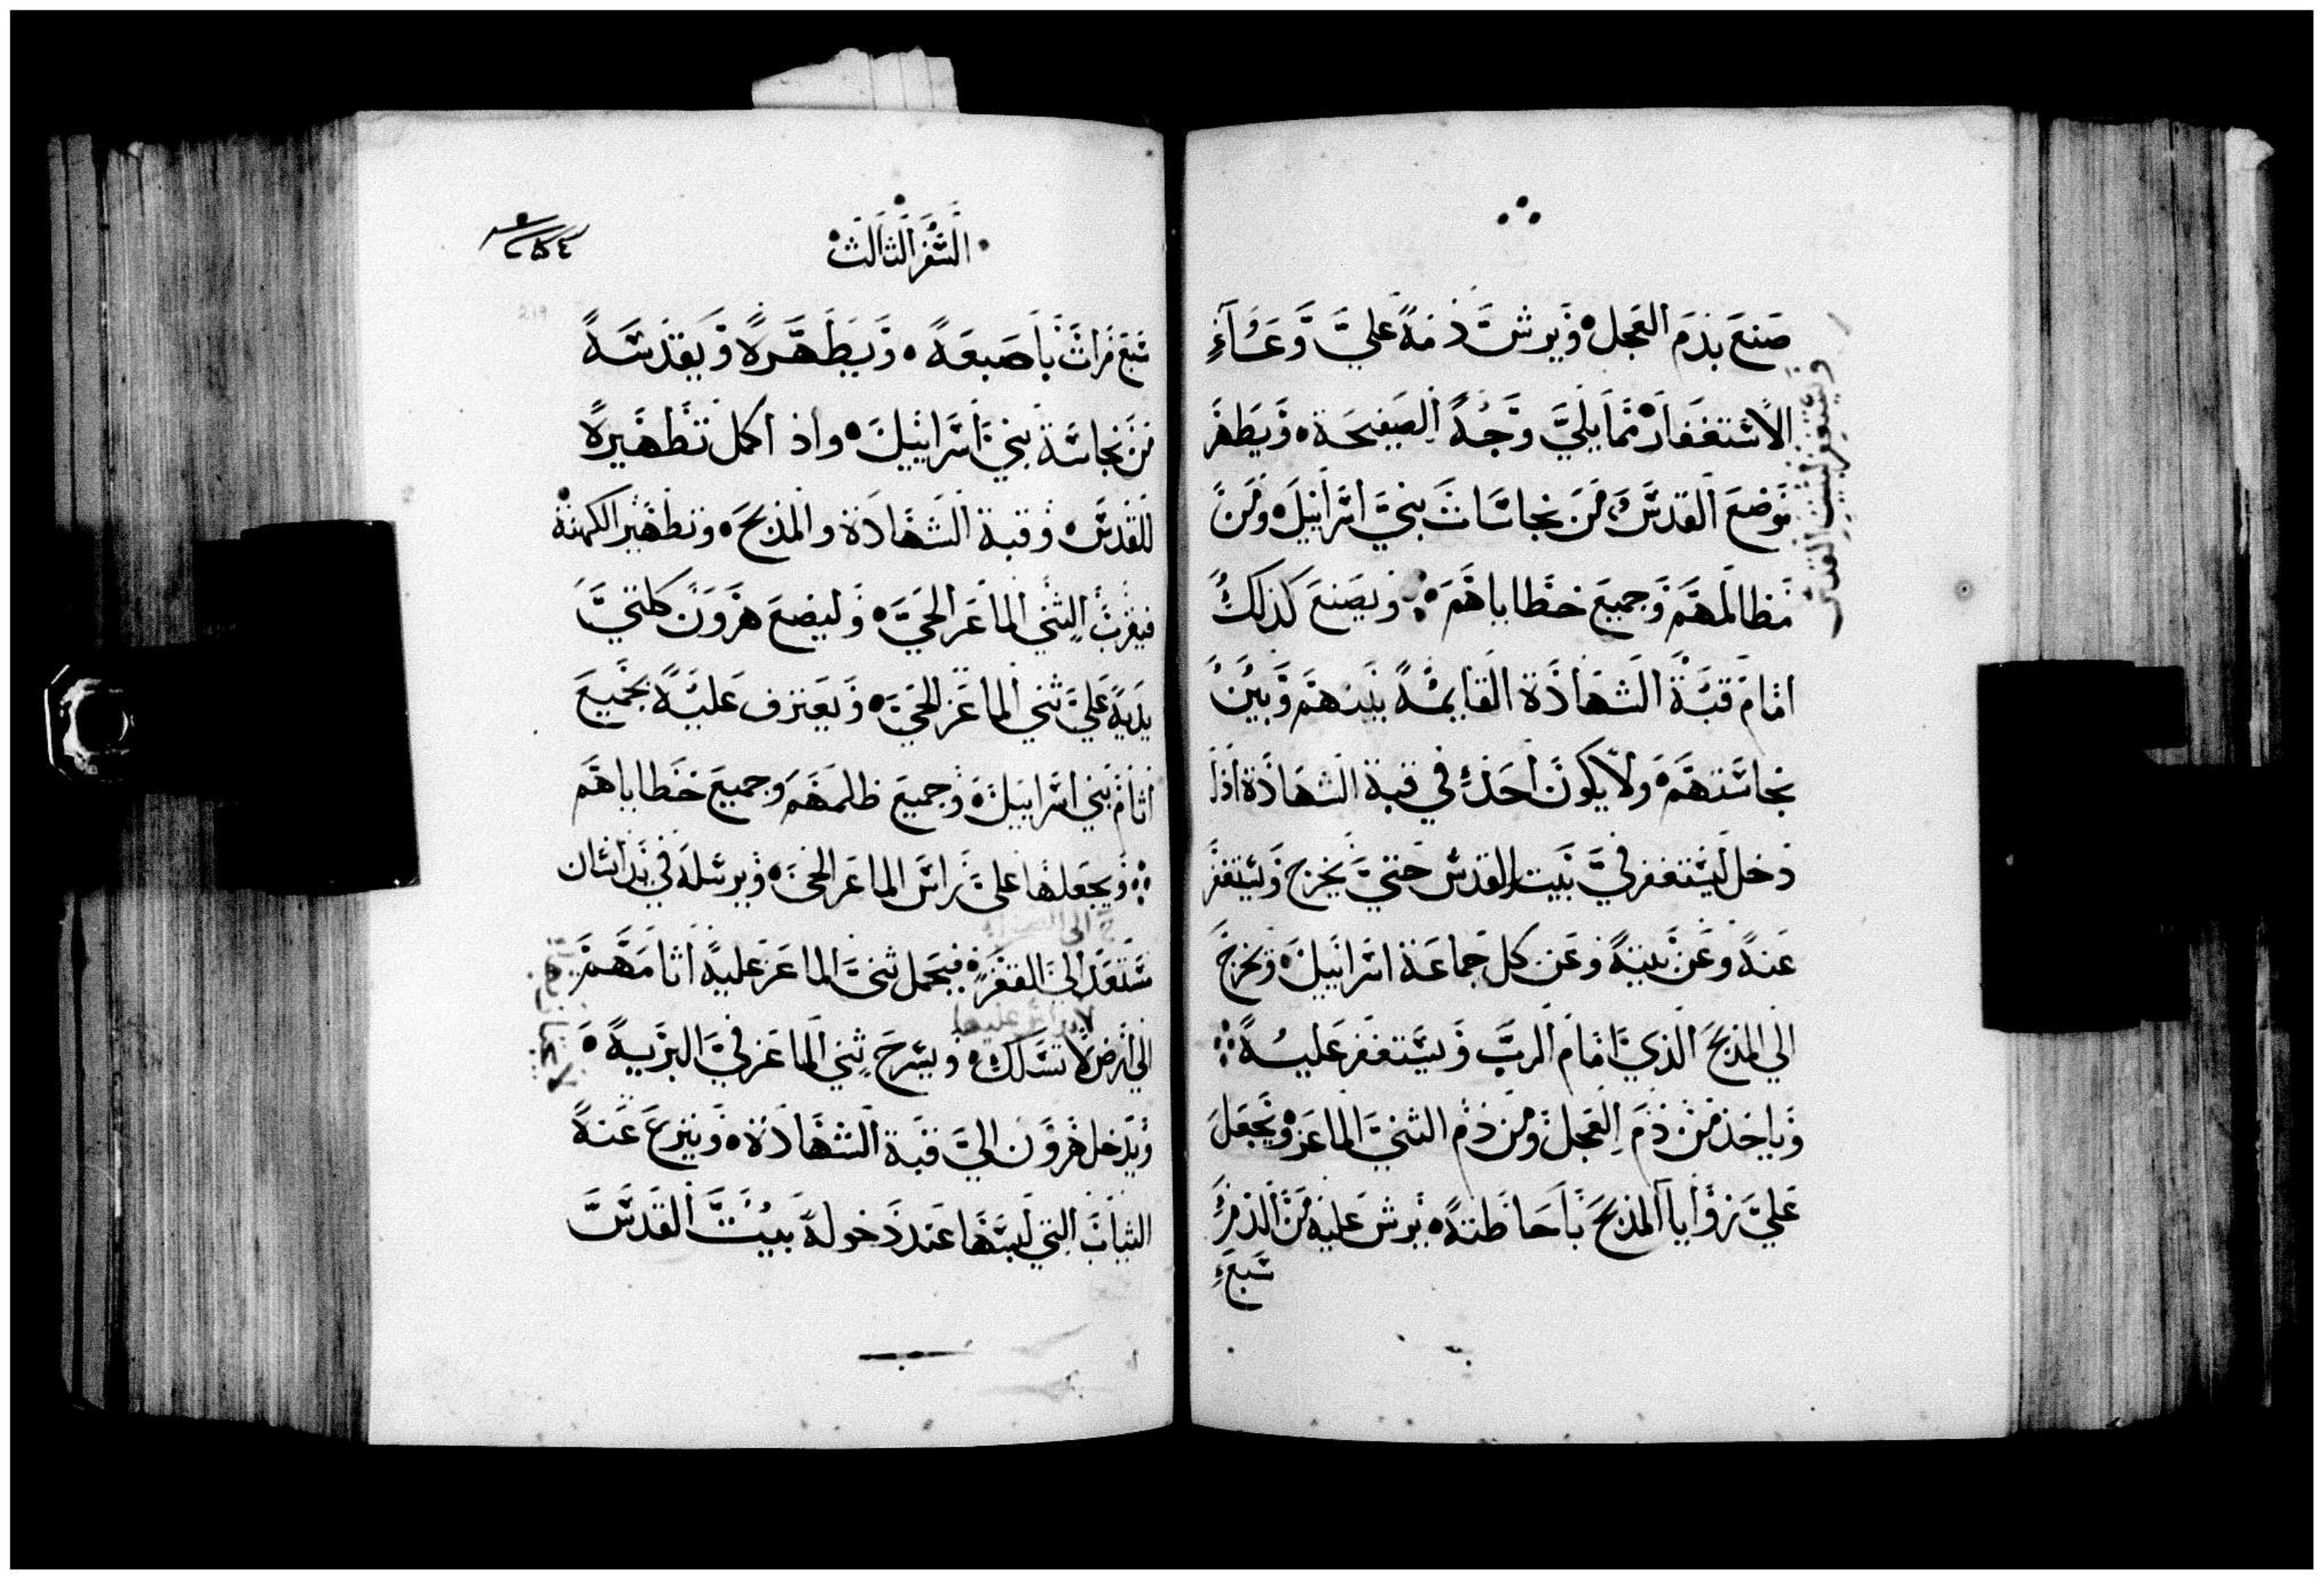 صنع بدم العجل ويرش دمه علي وعاء
الاستغفار مما يلي وجه الصفيحة ويطهر
موضع القدس من نجاسات بني اسراييل ومن
مظالمهم وجميع خطاياهم ويصنع كذلك
امام قبة الشهادة القايمة بينهم وبين
نجاستهم ولا يكون احد في قبة الشهادة اذا
دخل ليستغفر في بيت القدس حتي يخرج ويستغفر
عنه وعن بيته وعن كل جماعة اسراييل ويخرج
الي المذبح الذي امام الرب ويستغفر عليه
وياخذ من دم العجل ومن دم الثني الماعز ويجعل
علي زوايا المذبح باحاطته يرش عليه من الدم
سبع
ويستغفر لبيت القدس
السفر الثالث
219
سبع مرات باصبعه ويطهره ويقدسه
من نجاسة بني اسراييل واذ اكمل تطهيره
للقدس وقبة الشهادة والمذبح وتطهير الكهنة
فيقرب الثني الماعز الحي وليضع هرون كلتي
يديه علي ثني الماعز الحي ويعترف عليه بجميع
اثام بني اسراييل وجميع ظلمهم وجميع خطاياهم
ويجعلها علي راس الماعز الحي ويرسله في يد انسان
مستعد الي القفر فيحمل ثني الماعز عليه اثامهم
الي ارض لا تسلك ويسرح ثني الماعز في البرية
ويدخل هرون الي قبة الشهادة وينزع عنه
الثياب التي لبسها عند دخوله بيت القدس